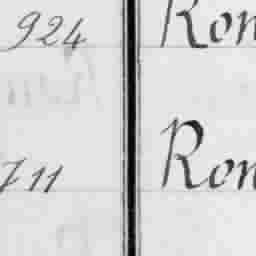 924 Ron
711 Ron